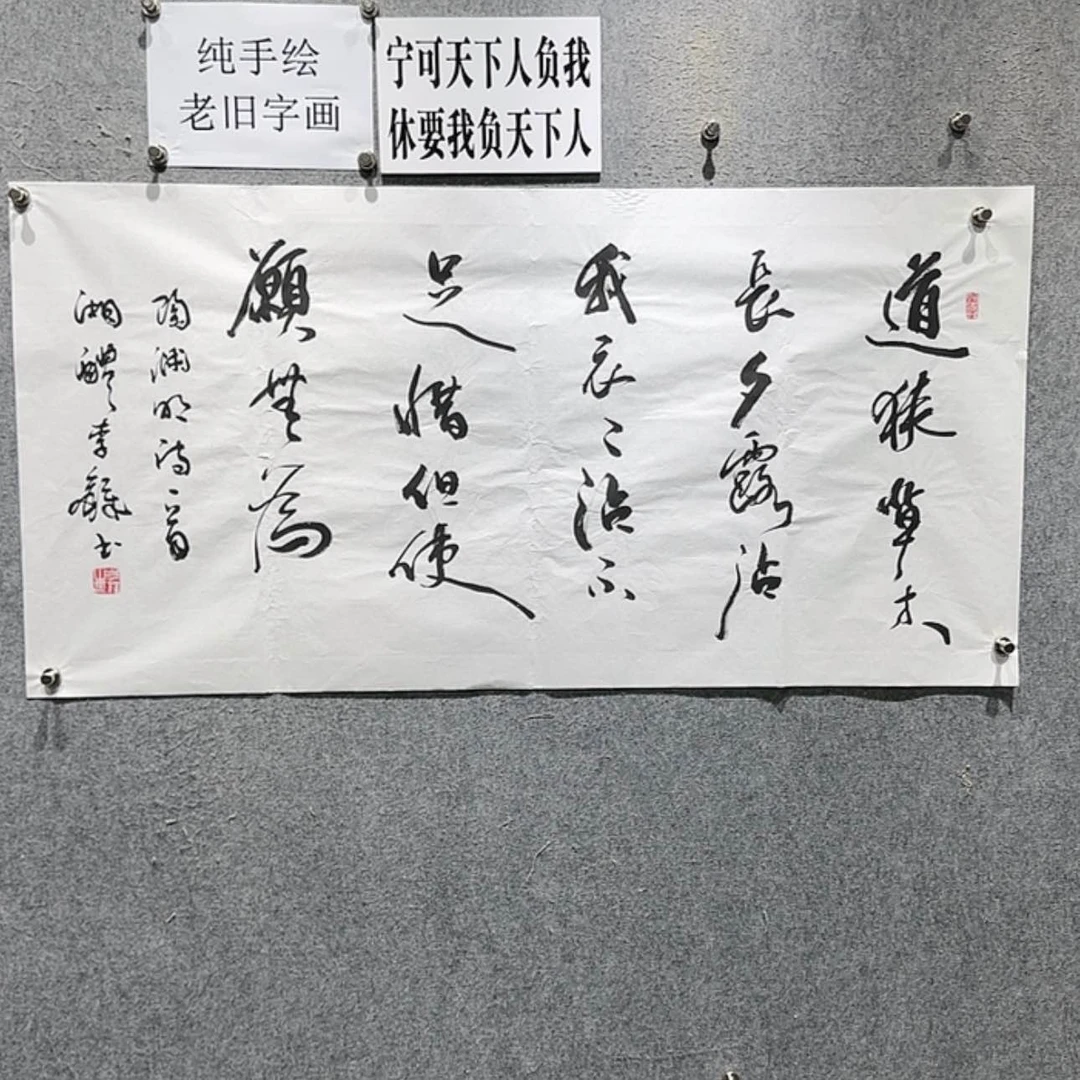 纯手绘
老旧字画
宁可天下人负我
休要我负天下人
道狭草木
長夕露沾
我衣〻沾不
足惜但使
願無為
陶渊明诗一首
湘醴李书